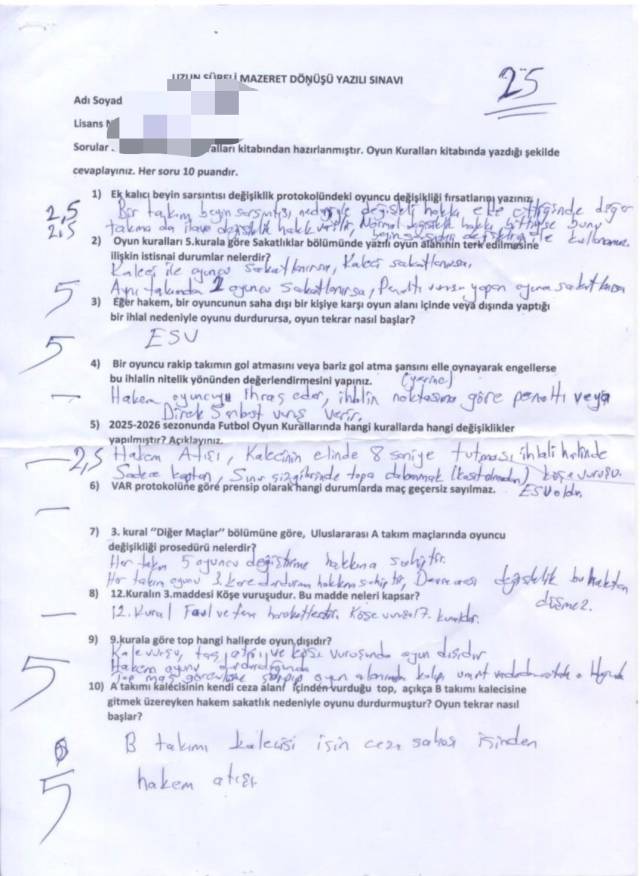 UZUN SÜRELİ MAZERET DÖNÜŞÜ YAZILI SINAVI
25
Adı Soyad
Lisans N
Sorular . alları kitabından hazırlanmıştır. Oyun Kuralları kitabında yazdığı şekilde
cevaplayınız. Her soru 10 puandır.
1) Ek kalıcı beyin sarsıntısı değişiklik protokolündeki oyuncu değişikliği fırsatlarını yazınız.
2,5 Bir takım beyin sarsıntısı nedeniyle değişiklik hakkı elde ettiğinde diğer
2,5 takıma da ilave değişiklik hakkı verilir, Normal değişiklik hakkı bittiyse bunu
beyin sarsıntısı değişikliği ile kullanamaz
2) Oyun kuralları 5.kurala göre Sakatlıklar bölümünde yazılı oyun alanının terk edilmesine
ilişkin istisnai durumlar nelerdir?
Kaleci ile oyuncu sakatlanırsa, Kaleci sakatlanırsa,
5 Aynı takımdan 2 oyuncu sakatlanırsa, Penaltı vuruşu yapan oyuncu sakatlanırsa
3) Eğer hakem, bir oyuncunun saha dışı bir kişiye karşı oyun alanı içinde veya dışında yaptığı
bir ihlal nedeniyle oyunu durdurursa, oyun tekrar nasıl başlar?
5 ESV
4) Bir oyuncu rakip takımın gol atmasını veya bariz gol atma şansını elle oynayarak engellerse
bu ihlalin nitelik yönünden değerlendirmesini yapınız. (yerine)
— Hakem oyuncuyu ihraç eder, ihlalin noktasına göre penaltı veya
Direk Serbest vuruş verir.
5) 2025-2026 sezonunda Futbol Oyun Kurallarında hangi kurallarda hangi değişiklikler
yapılmıştır? Açıklayınız.
— 2,5 Hakem Atışı, Kalecinin elinde 8 saniye tutması ihlali halinde
Sadece kaptan, köşe vuruşu.
6) VAR protokolüne göre prensip olarak hangi durumlarda maç geçersiz sayılmaz. ESV
—
7) 3. kural "Diğer Maçlar" bölümüne göre, Uluslararası A takım maçlarında oyuncu
değişikliği prosedürü nelerdir?
Her takım 5 oyuncu değiştirme hakkına sahiptir.
Her takım oyunu 3 kere durdurma hakkına sahiptir, Devre arası değişiklik bu haktan
düşmez.
8) 12.Kuralın 3.maddesi Köşe vuruşudur. Bu madde neleri kapsar?
— 12. Kural Faul ve fena hareketlerdir. Köşe vuruşu 17. kuraldır.
9) 9.kurala göre top hangi hallerde oyun dışıdır?
Kale vuruşu, taç atışı, ve köşe vuruşunda oyun dışıdır
Hakem oyunu durdurduğunda
5 Top maç görevlisine çarpıp oyun alanında kalıp
10) A takımı kalecisinin kendi ceza alanı içinden vurduğu top, açıkça B takımı kalecisine
gitmek üzereyken hakem sakatlık nedeniyle oyunu durdurmuştur? Oyun tekrar nasıl
başlar?
B takımı kalecisi için ceza sahası içinden
5 hakem atışı